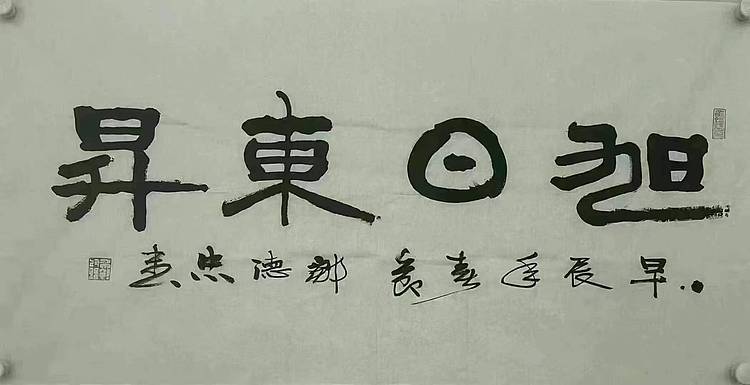 旭日東昇
甲辰年春德忠书